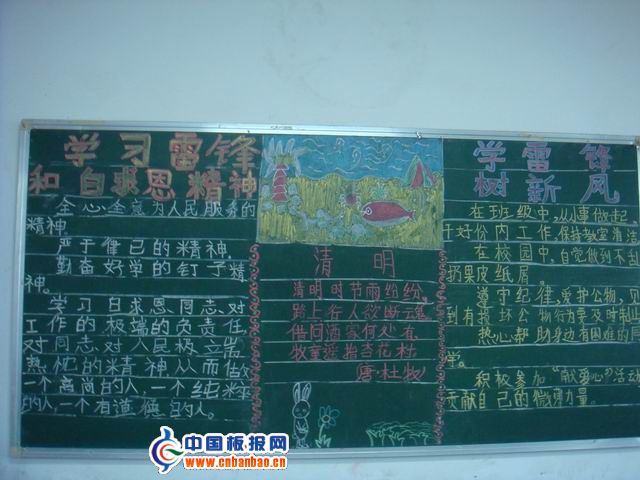 学习雷锋
和白求恩精神
全心全意为人民服务的
精神
严于律己的精神,
勤奋好学的钉子精
神。
学习白求恩同志对
工作的极端的负责任,
对同志对人民极
热忱的精神从而做
一个高尚的人,一个纯粹
的人,一个有道德的人。
清明
清明时节雨纷纷,
路上行人欲断魂
借问酒家何处有
牧童遥指杏花村
唐·杜牧
学雷锋
树新风
在班级中,从小事做起,
干好份内工作,保持教室清洁
在校园中,自觉做到不乱
扔果皮纸屑。
遵守纪律,爱护公物,
到有损坏公物行为要及时制止
热心帮助身边有困难的
学。
积极参加“献爱心”活动
贡献自己的微薄力量。
中国板报网
www.cnbanbao.cn